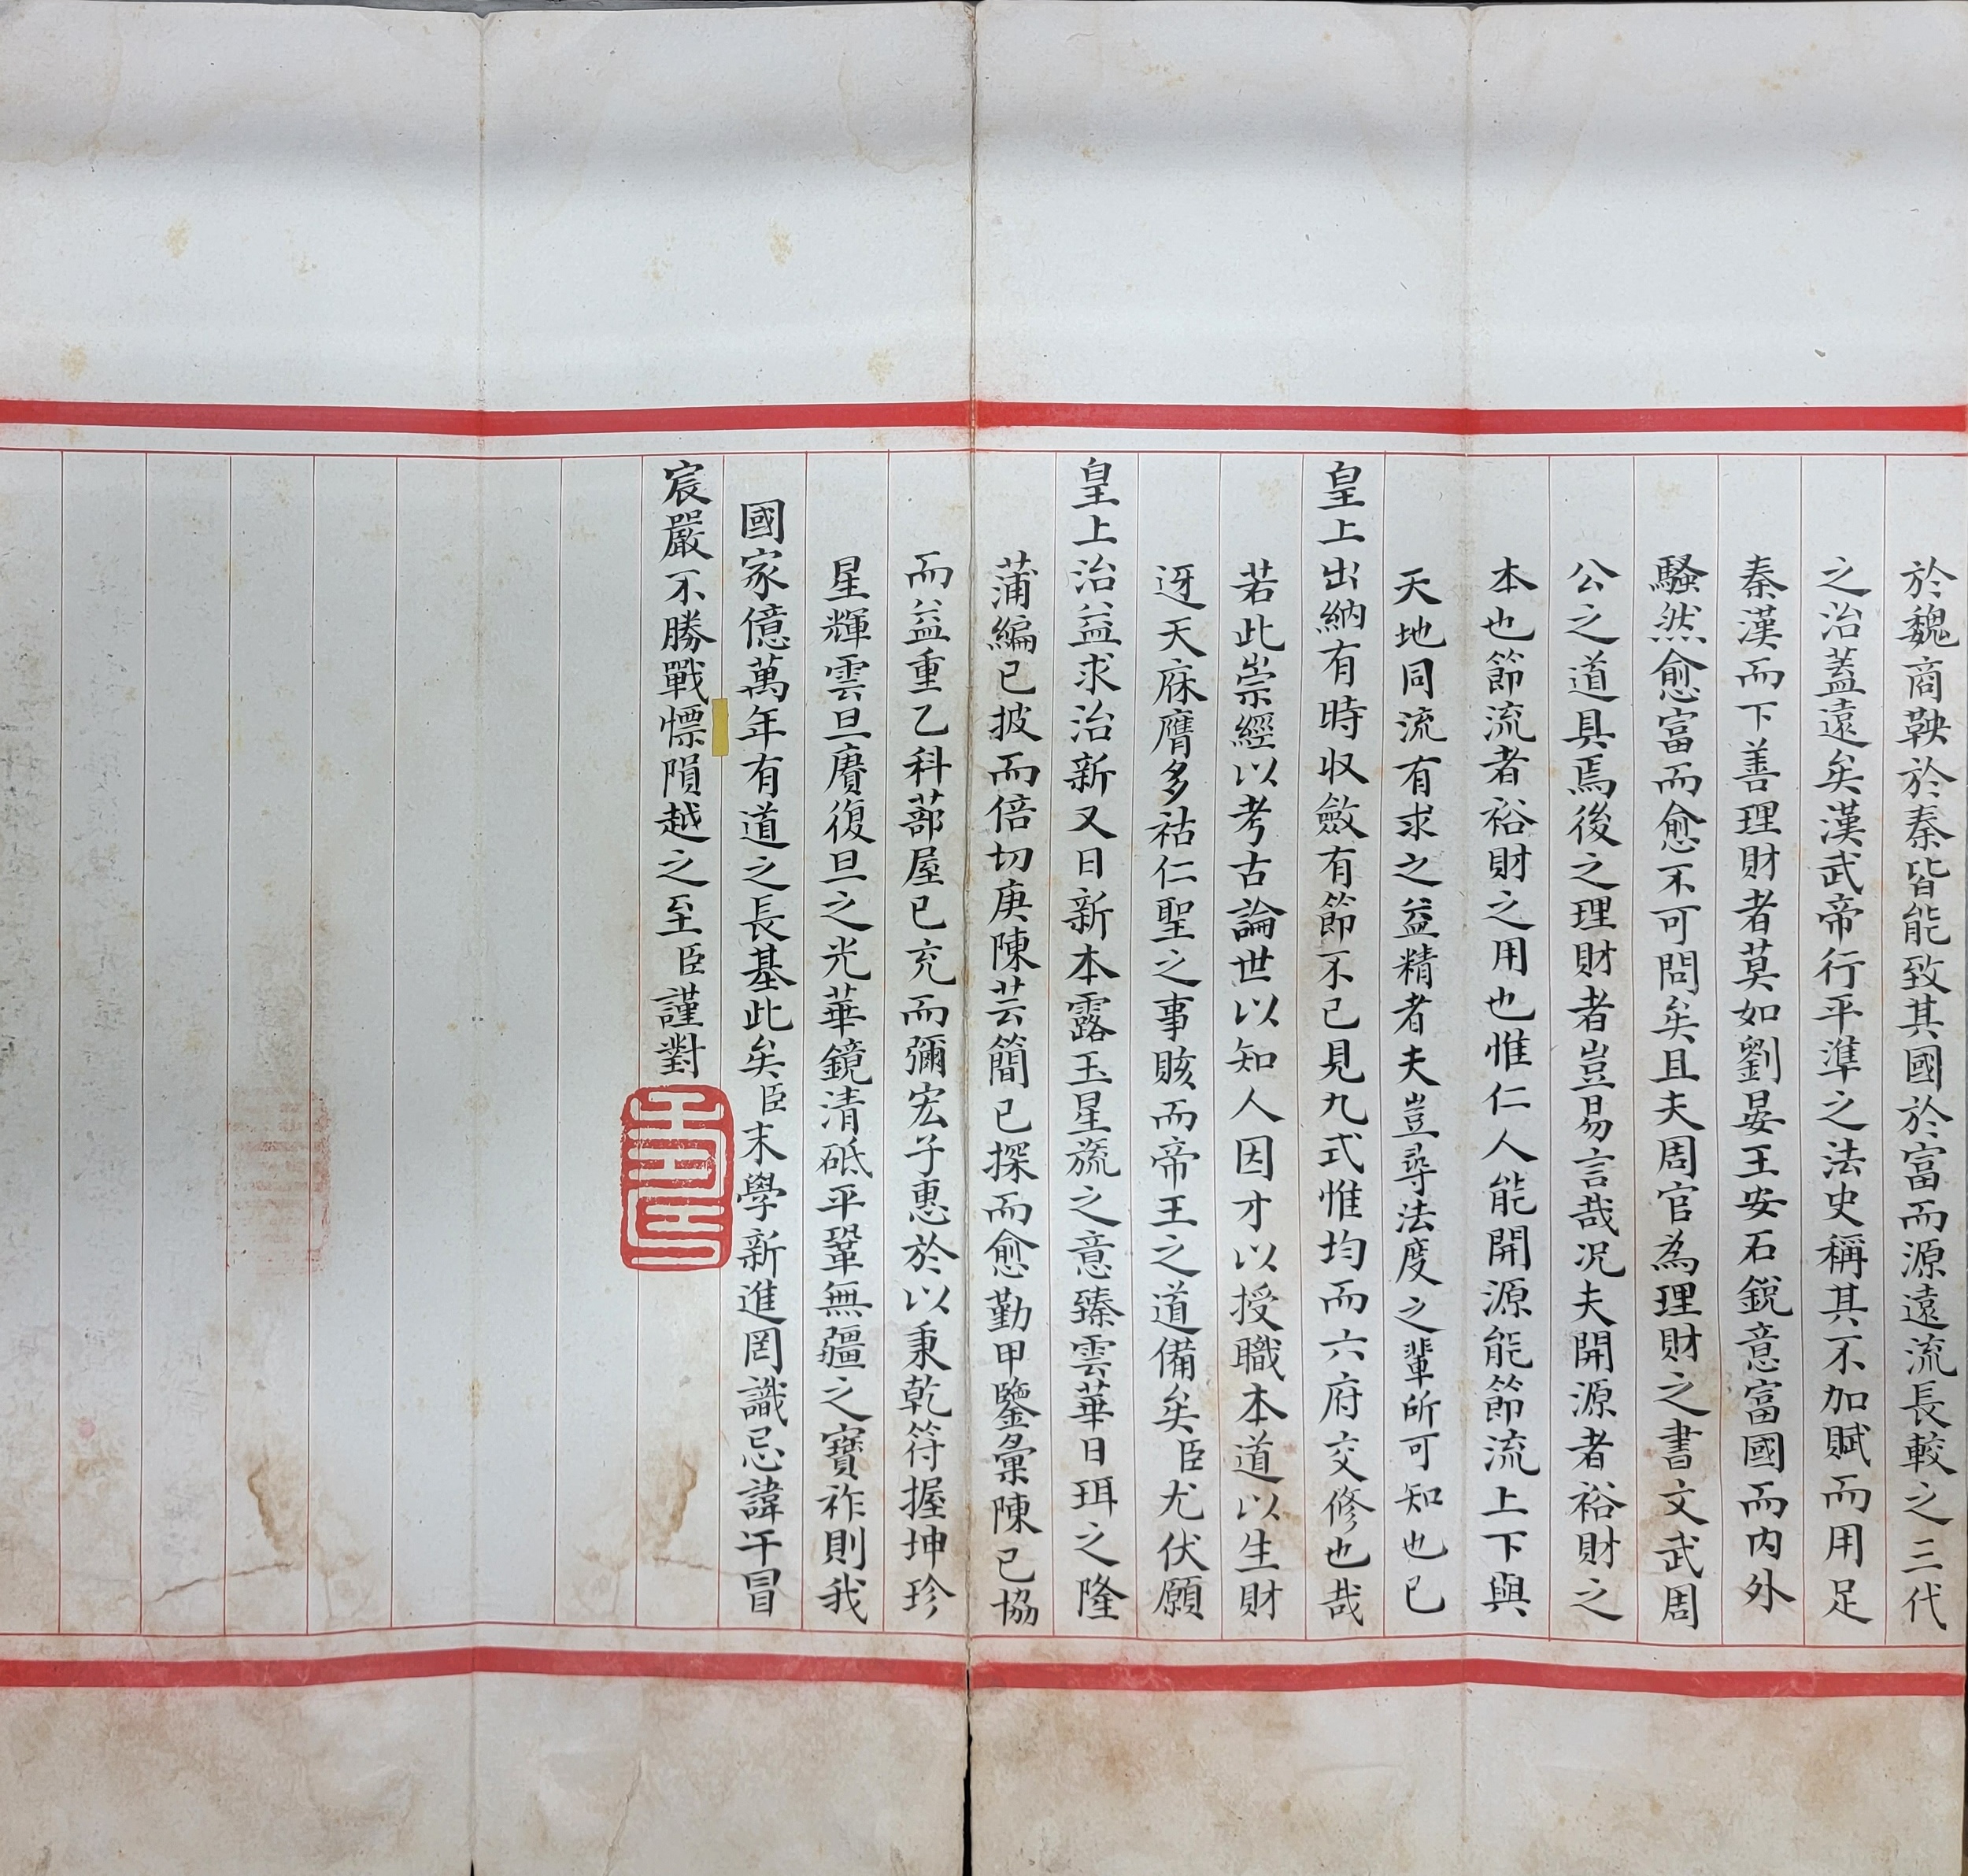 於魏商鞅於秦皆能致其國於富而源遠流長較之三代
之治蓋遠矣漢武帝行平準之法史稱其不加賦而用足
秦漢而下善理財者莫如劉晏王安石銳意富國而內外
騷然愈富而愈不可問矣且夫周官為理財之書文武周
公之道具焉後之理財者豈易言哉况夫開源者裕財之
本也節流者裕財之用也惟仁人能開源能節流上下與
天地同流有求之益精者夫豈尋法度之輩所可知也已
皇上出納有時收斂有節不已見九式惟均而六府交修也哉
若此崇經以考古論世以知人因才以授職本道以生財
迓天庥膺多祜仁聖之事賅而帝王之道備矣臣尤伏願
皇上治益求治新又日新本露玉星旒之意臻雲華日珥之隆
蒲編已披而倍切庚陳芸簡已探而愈勤甲鑒彙陳已協
而益重乙科蔀屋已充而彌宏子惠於以秉乾符握坤珍
星輝雲旦賡復旦之光華鏡清砥平鞏無疆之寶祚則我
國家億萬年有道之長基此矣臣末學新進罔識忌諱干冒
宸嚴不勝戰慄隕越之至臣謹對